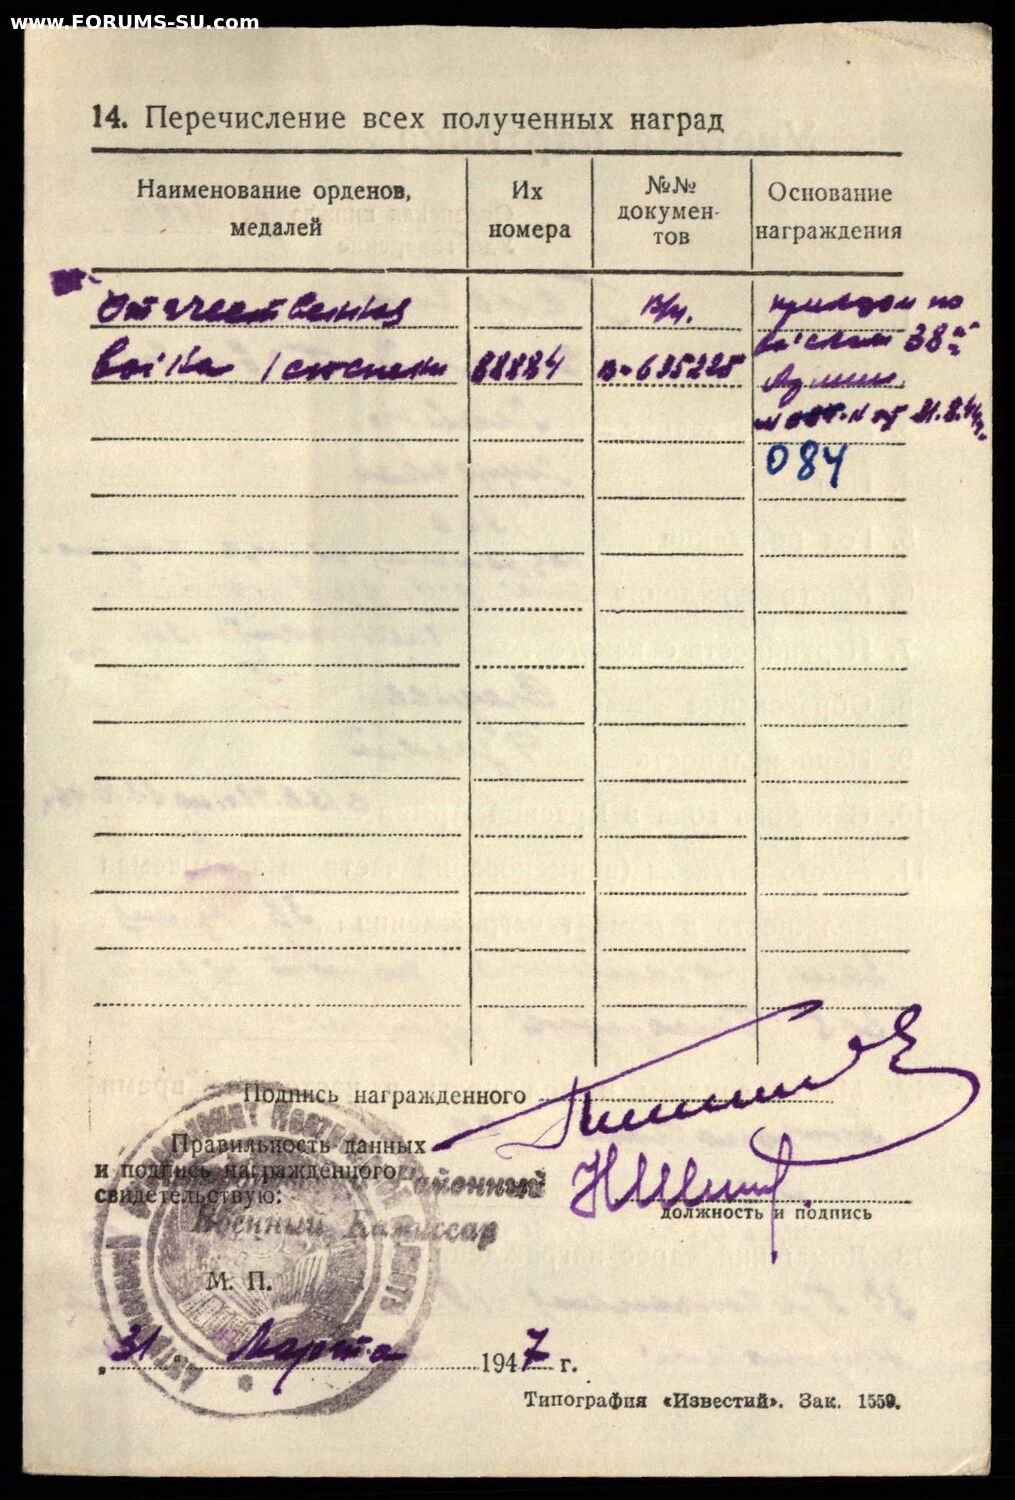 www.FORUMS-SU.com
14. Перечисление всех полученных наград
Наименование орденов, медалей
Их номера
№№ докумен- тов
Основание награждения
Отечественная
война I степени
88884
в/ч.
В-635225
приказом по
войскам 38й
Армии
от 31.8.44г.
084
Подпись награжденного
Правильность данных
и подпись награжденного
свидетельствую:
Районный
Военный Комиссар
должность и подпись
М. П.
„ 31 “ Марта 1947 г.
Типография «Известий». Зак. 1559.